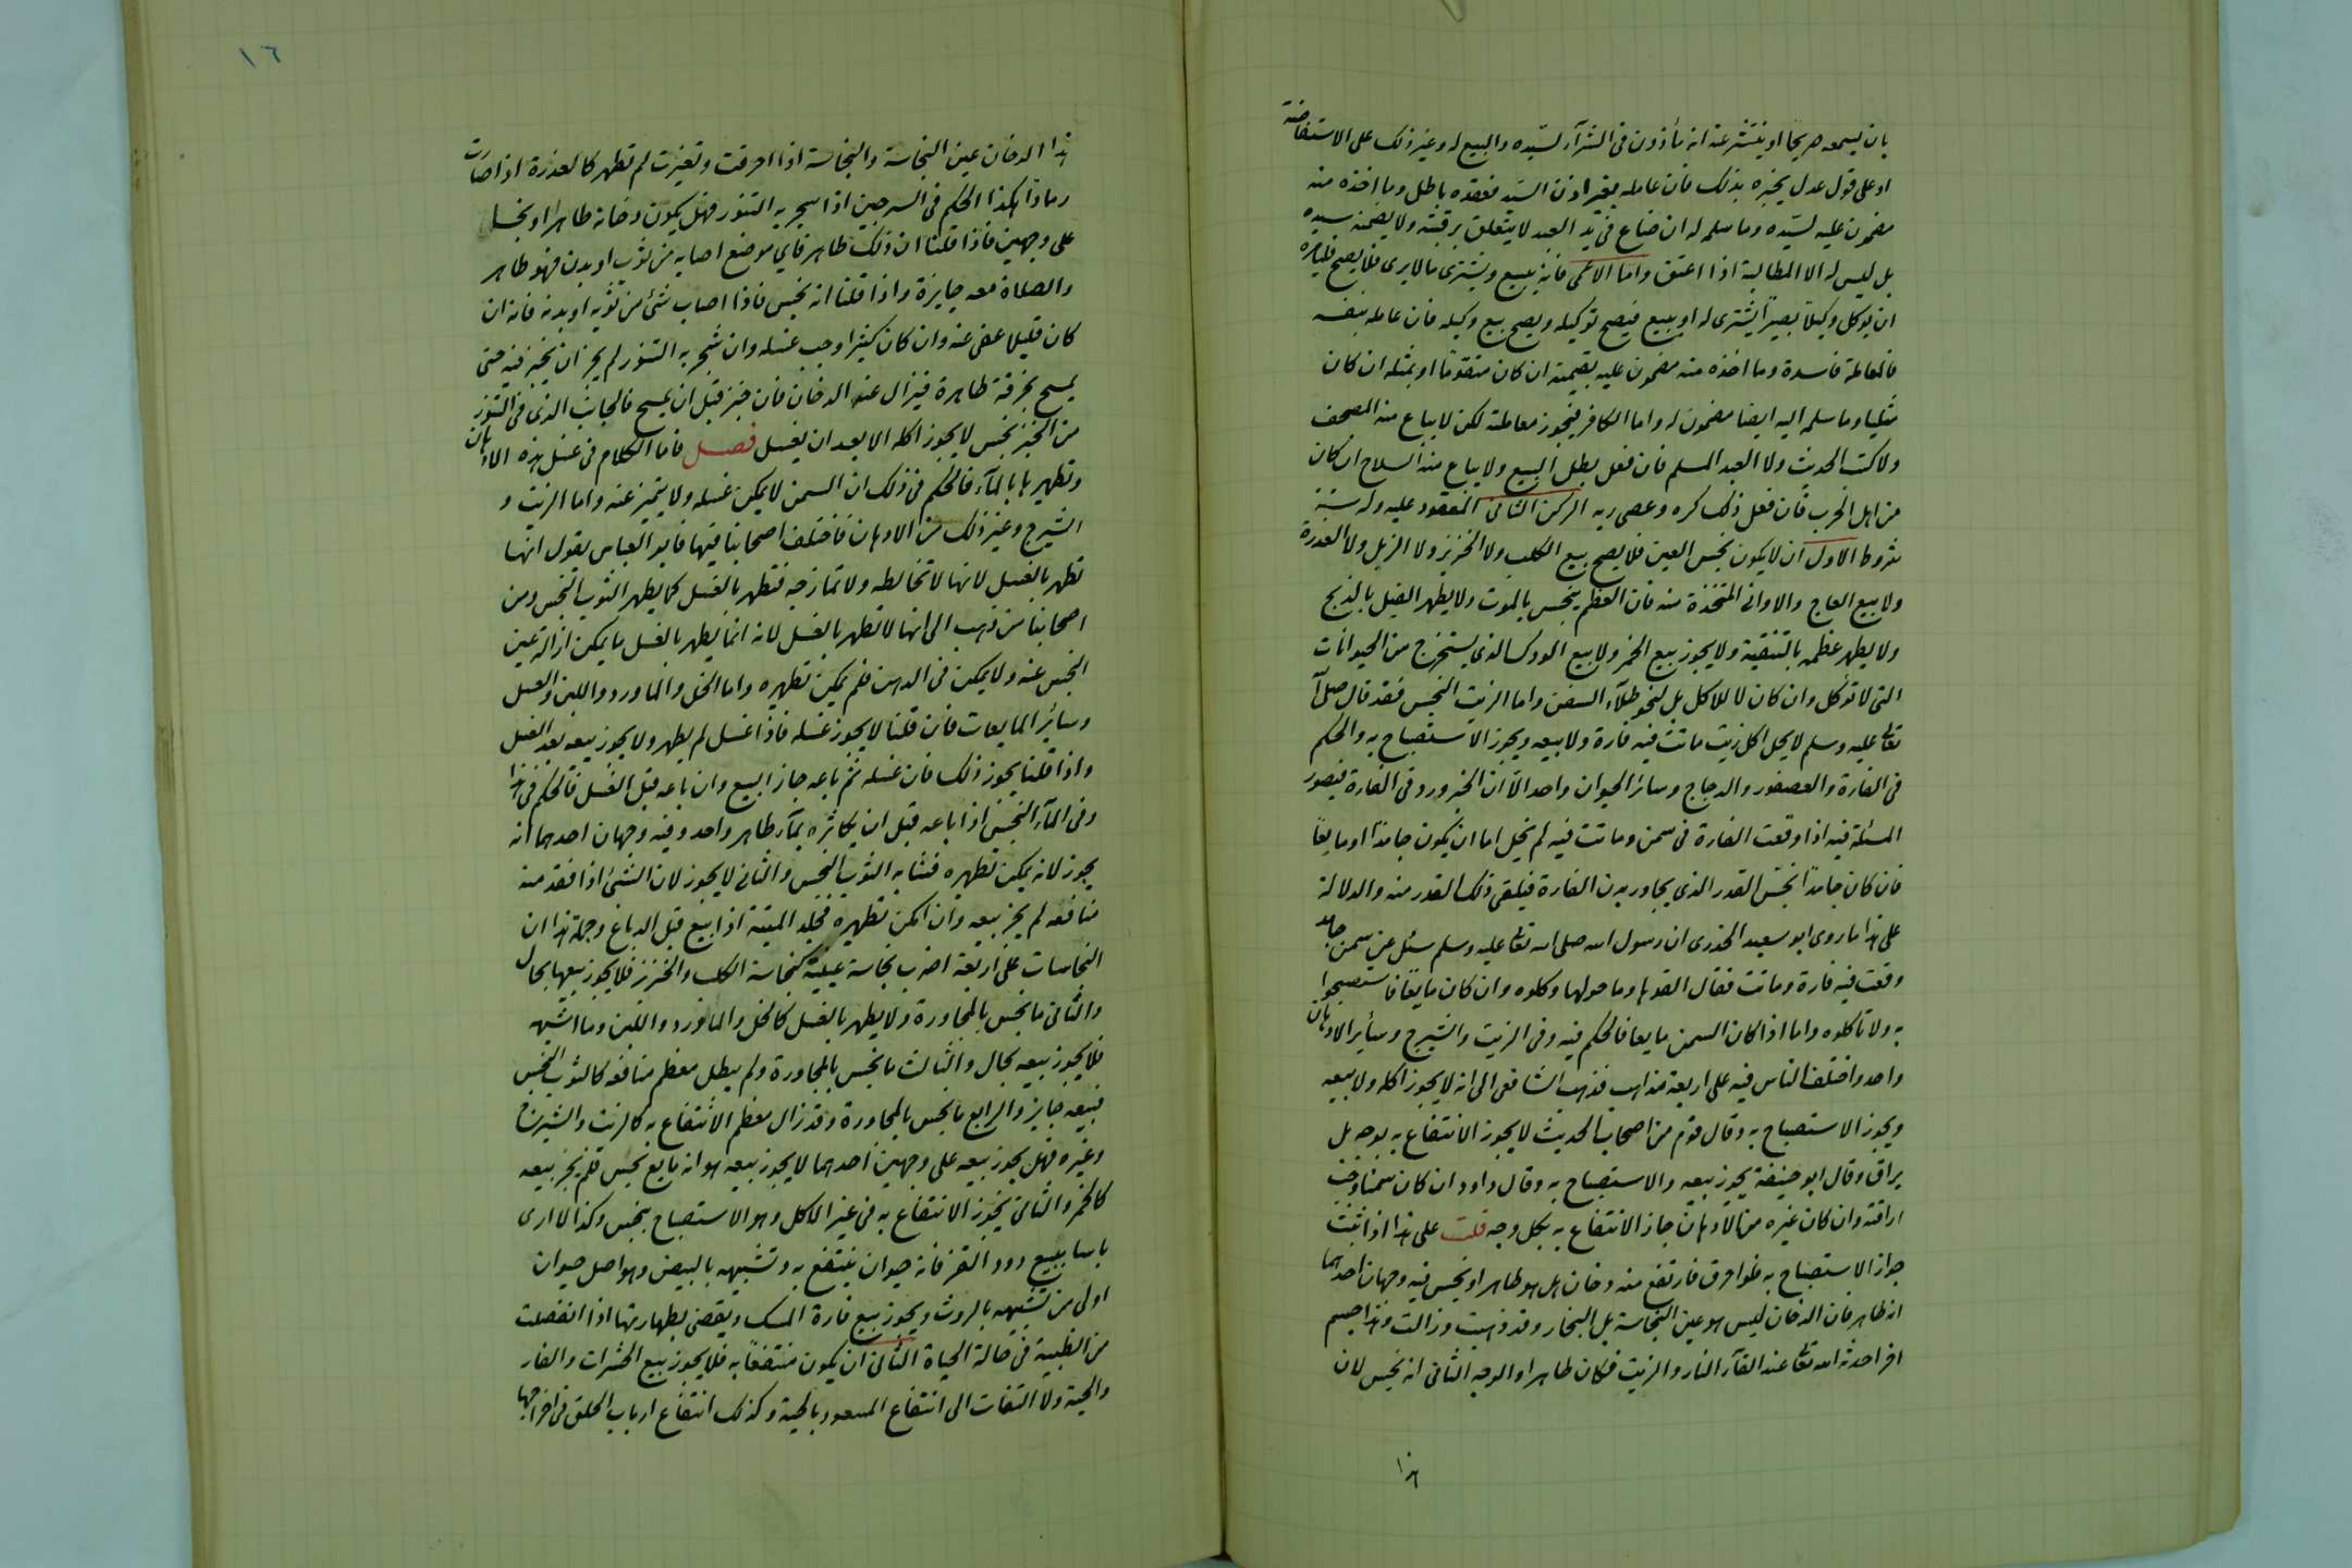 بان يسمعه صريحا او ينتشر عنه انه مأذون فى الشرآء لسيده والبيع له وغير ذلك على الاستفاضة
او على قول عدل يخبره بذلك فان عامله بغير اذن السيد فعقده باطل وما اخذه منه
مضمون عليه لسيده وما سلمه له ان ضاع فى يد العبد لا يتعلق برقبته ولا يضمنه سيده
بل ليس له الا المطالبة اذا اعتق واما الاعمى فانه يبيع ويشترى مالا يرى فلا يصح فليأمره
ان يوكل وكيلا بصيرا يشترى له او يبيع فيصح توكيله ويصح بيع وكيله فان عامله بنفسه
فالمعاملة فاسدة وما اخذه منه مضمون عليه بقيمته ان كان متقوما او بمثله ان كان
مثليا وما سلمه اليه ايضا مضمون له واما الكافر فيجوز معاملته لكن لا يباع منه المصحف
ولا كتب الحديث ولا العبد المسلم فان فعل بطل البيع ولا يباع منه السلاح ان كان
من اهل الحرب فان فعل ذلك كره وعصى ربه الركن الثانى المعقود عليه وله ستة
شروط الاول ان لا يكون نجس العين فلا يصح بيع الكلب ولا الخنزير ولا الزبل ولا العذرة
ولا بيع العاج والاوانى المتخذة منه فان العظم ينجس بالموت ولا يطهر الفيل بالذبح
ولا يطهر عظمه بالتنقية ولا يجوز بيع الخمر ولا بيع الودك الذى يستخرج من الحيوانات
التى لا تؤكل وان كان لا للاكل بل لنحو طلآء السفن واما الزيت النجس فقد قال صلى الله
تعالى عليه وسلم لا يحل اكل زيت ماتت فيه فارة ولا بيعه ويجوز الاستصباح به والحكم
فى الفارة والعصفور والدجاج وسائر الحيوان واحد الا ان الخبر ورد فى الفارة فيصور
المسئلة فيه اذا وقعت الفارة فى سمن وماتت فيه لم يخل اما ان يكون جامدا او مايعا
فان كان جامدا نجس القدر الذى يجاور بدن الفارة فيلقى ذلك القدر منه والدلالة
على هذا ما روى ابو سعيد الخدرى ان رسول الله صلى الله تعالى عليه وسلم سئل عن سمن جامد
وقعت فيه فارة وماتت فقال القوها وما حولها وكلوه وان كان مايعا فاستصبحوا
به ولا تأكلوه واما اذا كان السمن مايعا فالحكم فيه وفى الزيت والشيرج وسائر الادهان
واحد واختلف الناس فيه على اربعة مذاهب فذهب الشافعى الى انه لا يجوز اكله ولا بيعه
ويجوز الاستصباح به وقال قوم من اصحاب الحديث لا يجوز الانتفاع به بوجه بل
يراق وقال ابو حنيفة يجوز بيعه والاستصباح به وقال داود ان كان سمنا وجب
اراقته وان كان غيره من الادهان جاز الانتفاع به بكل وجه قلت على هذا اذا ثبت
جواز الاستصباح به فلو احرق فارتفع منه دخان هل هو طاهر او نجس فيه وجهان احدهما
انه طاهر فان الدخان ليس هو عين النجاسة بل البخار وقد ذهبت وزالت وهذا جسم
اخر احدثه الله تعالى عند القآء النار والزيت فكان طاهرا والوجه الثانى انه نجس لان
هذا
١٦
هذا الدخان عين النجاسة والنجاسة اذا احرقت وتغيرت لم تطهر كالعذرة اذا صارت
رمادا هكذا الحكم فى السرجين اذا سجر به التنور فهل يكون دخانه طاهرا او نجسا
على وجهين فاذا قلنا ان ذلك طاهر فاي موضع اصابه من ثوب او بدن فهو طاهر
والصلاة معه جايزة واذا قلنا انه نجس فاذا اصاب شئ من ثوبه او بدنه فانه ان
كان قليلا عفى عنه وان كان كثيرا وجب غسله وان شجر به التنور لم يجز ان يخبز فيه حتى
يمسح بخرقة طاهرة فيزال عنه الدخان فان خبز قبل ان يمسح فالجانب الذى فى التنور
من الخبز نجس لا يجوز اكله الا بعد ان يغسل فصل فاما الكلام فى غسل هذه الادهان
وتطهيرها بالمآء فالحكم فى ذلك ان السمن لا يمكن غسله ولا يتميز عنه واما الزيت و
الشيرج وغير ذلك من الادهان فاختلف اصحابنا فيها فابو العباس يقول انها
تطهر بالغسل لانها لا تخالطه ولا تمازجه فتطهر بالغسل كما يطهر الثوب النجس ومن
اصحابنا من ذهب الى انها لا تطهر بالغسل لانه انما يطهر بالغسل ما يمكن ازالة عين
النجس عنه ولا يمكن فى الدهن فلم يمكن تطهيره واما الخل والماورد واللبن والعسل
وسائر المايعات فان قلنا لا يجوز غسله فاذا غسل لم يطهر ولا يجوز بيعه بعد الغسل
واذا قلنا يجوز ذلك فان غسله ثم باعه جاز البيع وان باعه قبل الغسل فالحكم فى هذا
وفى المآء النجس اذا باعه قبل ان يكاثره بمآء طاهر واحد وفيه وجهان احدهما انه
يجوز لانه يمكن تطهيره فشابه الثوب النجس والثانى لا يجوز لان الشئ اذا فقد منه
منافعه لم يجز بيعه وان امكن تطهيره فجلد الميتة اذا بيع قبل الدباغ وجملة هذا ان
النجاسات على اربعة اضرب نجاسة عينية كنجاسة الكلب والخنزير فلا يجوز بيعها بحال
والثانى ما نجس بالمجاورة ولا يطهر بالغسل كالخل والماورد واللبن وما اشبهه
فلا يجوز بيعه بحال والثالث ما نجس بالمجاورة ولم يبطل معظم منافعه كالثوب النجس
فبيعه جايز والرابع ما نجس بالمجاورة وقد زال معظم الانتفاع به كالزيت والشيرج
وغيره فهل يجوز بيعه على وجهين احدهما لا يجوز بيعه هو انه مايع نجس فلم يجز بيعه
كالخمر والثانى يجوز الانتفاع به فى غير الاكل وهو الاستصباح بنجس وكذا لا ارى
باسا ببيع دود القز فانه حيوان ينتفع به وتشبيهه بالبيض وهو اصل حيوان
اولى من تشبيهه بالروث ويجوز بيع فارة المسك ويقضى بطهارتها اذا انفصلت
من الظبية فى حالة الحياة الثانى ان يكون منتفعا به فلا يجوز بيع الحشرات والفار
والحية ولا التفات الى انتفاع المسعود بالحية وكذلك انتفاع ارباب الحلق فى اخراجها